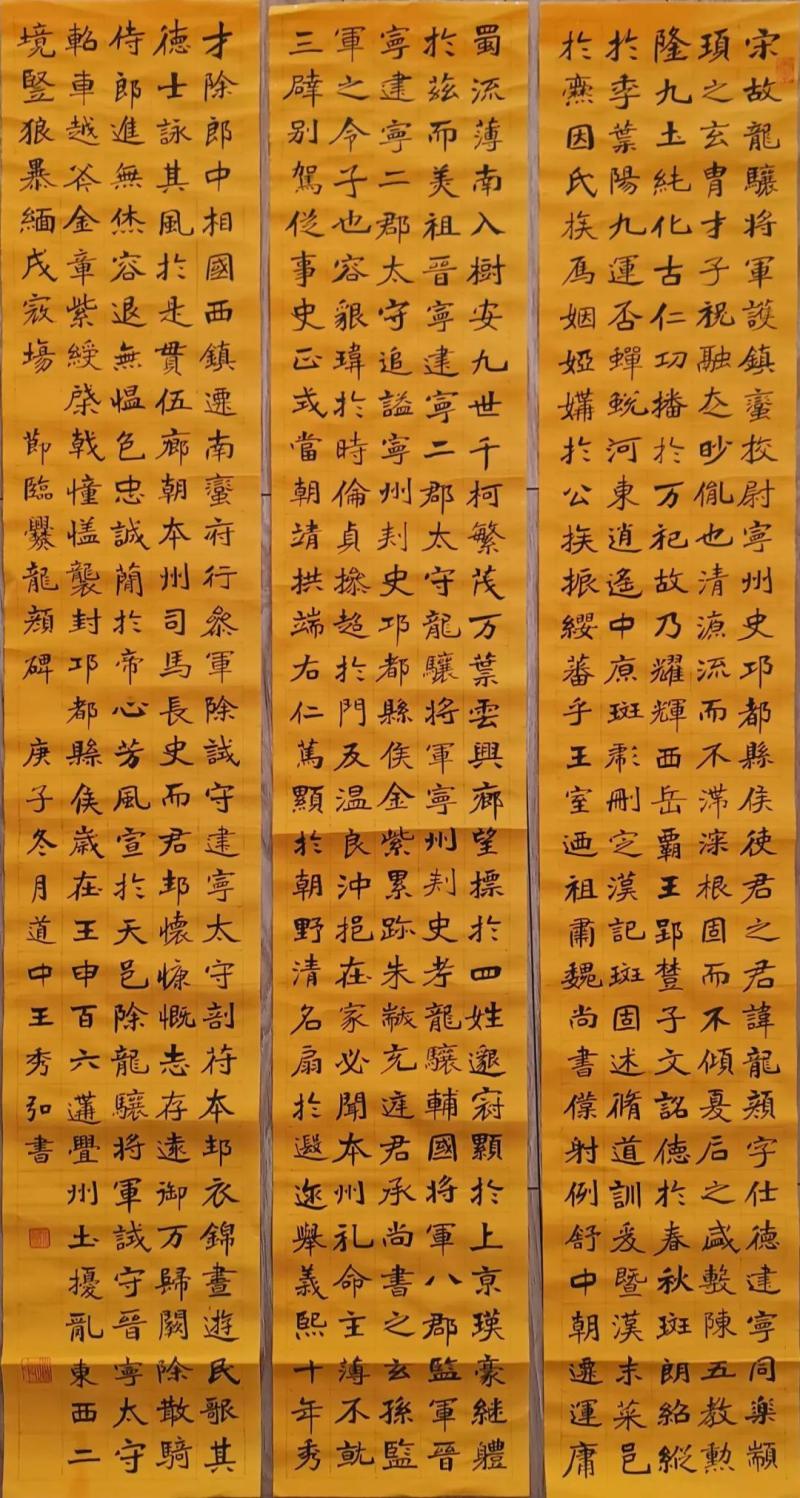 宋故龍驤将軍護鎮蠻挍尉寧州史邛都縣侯使君之君諱龍顔字仕德建寧同樂顓
頊之玄冑才子祝融之眇胤也清源流而不滞深根固而不傾夏后之盛敷陳五教勲
隆九土純化古仁功播於万祀故乃耀輝西岳霸王郢楚子文詺德於春秋斑朗紹縱
於季葉陽九運否蟬蛻河東逍遥中原斑彪刪定漢記斑固述脩道訓爰暨漢末菜邑
於因氏族焉姻婭媾於公族振纓蕃乎王室迺祖肅魏尚書僕射例舒中朝遷運庸
蜀流薄南入樹安九世千柯繁茂万葉雲興廊望摽於四姓邈冠顯於上京瑛豪継軆
於兹而美祖晋寧建寧二郡太守龍驤将軍寧州刾史考龍驤輔國将軍八郡監軍晉
寧建寧二郡太守追謚寧州刾史邛都縣侯金紫累跡朱黻充庭君承尚書之玄孫監
軍之令子也容貌瑋於時倫貞操超於門友温良沖挹在家必聞本州礼命主薄不就
三辟别駕従事史正式當朝靖拱端右仁篤顯於朝野清名扇於遐迩舉義熙十年秀
才除郎中相國西鎮遷南蠻府行叅軍除試守建寧太守剖符本邦衣錦晝遊民歌其
德士詠其風於是貫伍廊朝本州司馬長史而君邦懷慷慨志存遠御万歸闕除散騎
侍郎進無休容退無愠色忠誠蕳於帝心芳風宣於天邑除龍驤将軍試守晉寧太守
軺車越斧金章紫綬棨戟幢盖襲封邛都縣侯歲在壬申百六遘舋州土擾亂東西二
境豎狼暴緬戎寇塲 節臨爨龍顏碑 庚子冬月道中王秀弘書